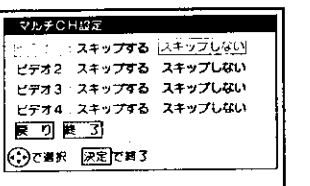 マルチCH設定
：スキップする スキップしない
ビデオ2：スキップする スキップしない
ビデオ3：スキップする スキップしない
ビデオ4：スキップする スキップしない
戻り 終了
で選択 決定で終了